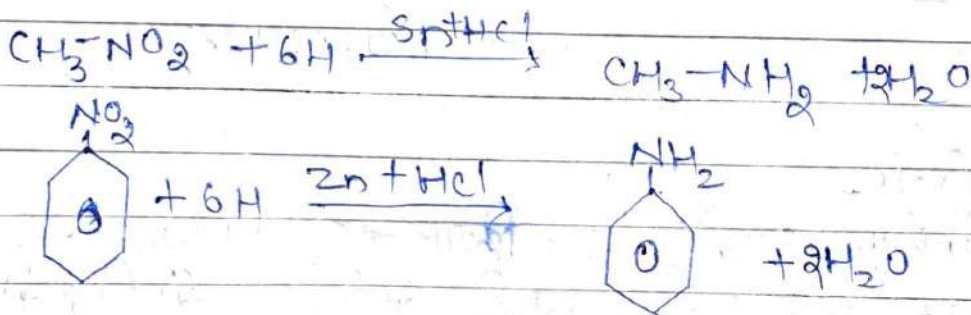 CH3-NO2 + 6H Sn+HCl → CH3-NH2 + 2H2O
NO2 NH2
+ 6H Zn + HCl → + 2H2O